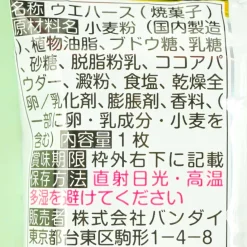 名称 ウエハース（焼菓子）
原材料名 小麦粉（国内製造
）、植物油脂、ブドウ糖、乳糖
、砂糖、脱脂粉乳、ココアパ
ウダー、澱粉、食塩、乾燥全
卵／乳化剤、膨脹剤、香料、（
一部に卵・乳成分・小麦を
含む） 内容量 1枚
賞味期限 枠外右下に記載
保存方法 直射日光・高温
多湿を避けてください
販売者 株式会社バンダイ
東京都台東区駒形1-4-8